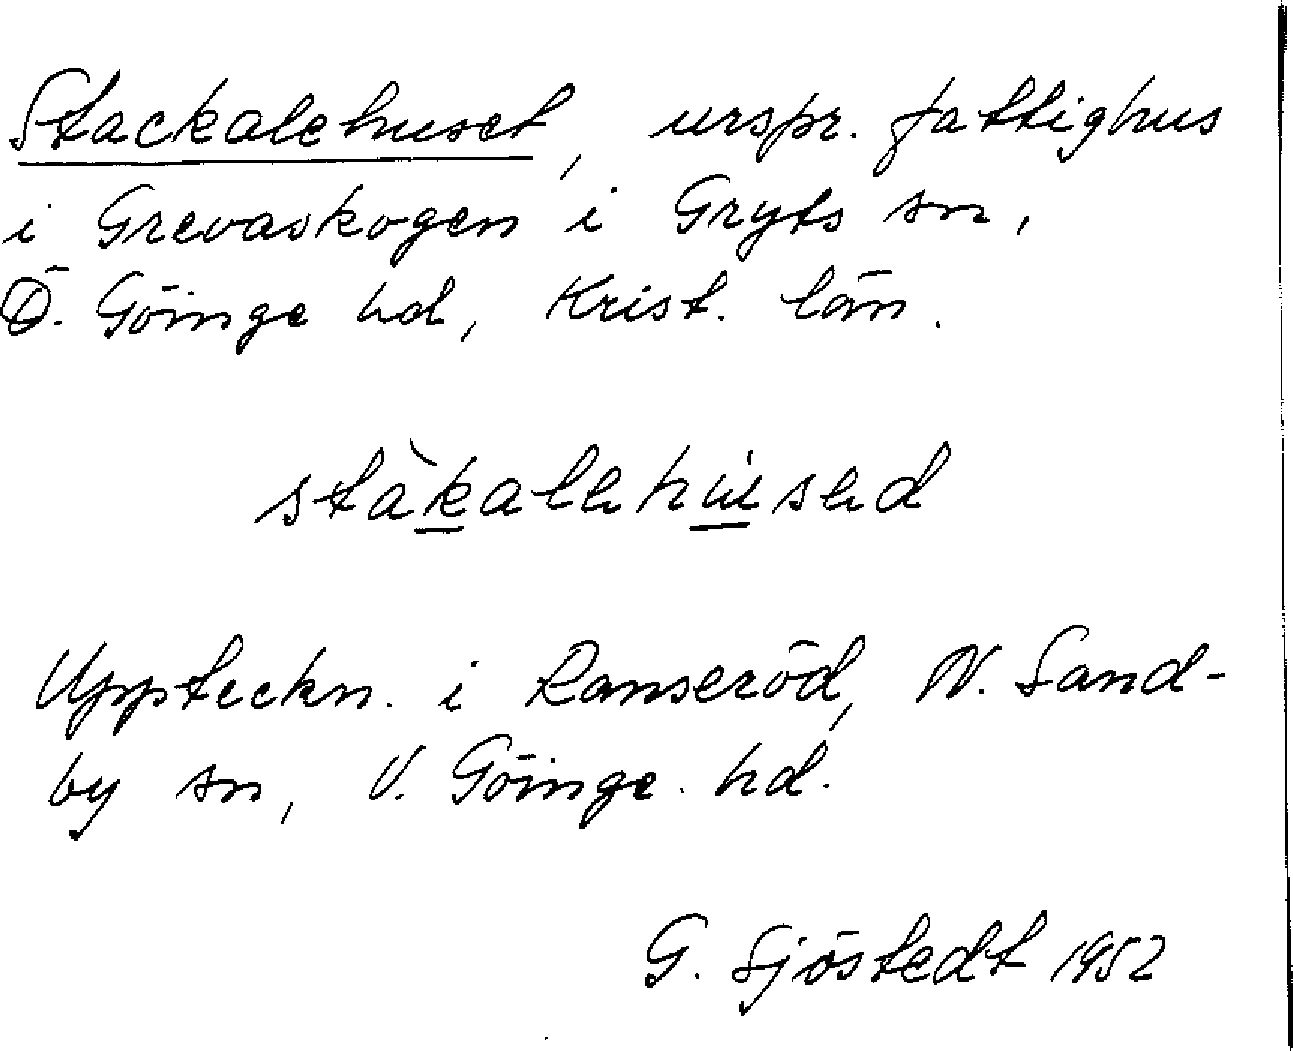 Stackalehuset, urspr. fattighus
i Grevaskogen i Gryts sn,
Ö. Göinge hd, Krist. län.
stàkalehu̇sed
Uppteckn. i Ranseröd, N. Sand-
by sn, V. Göinge hd.
G. Sjöstedt 1952